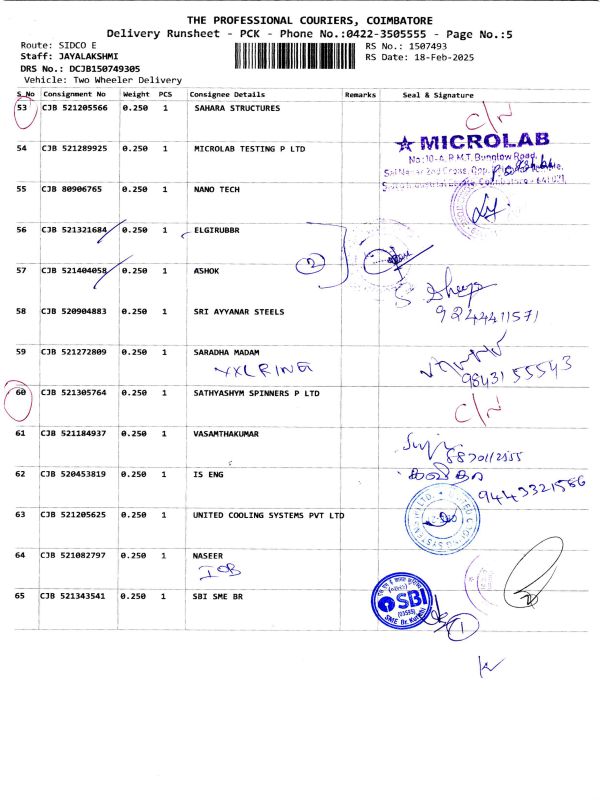 THE PROFESSIONAL COURIERS, COIMBATORE
Delivery Runsheet - PCK - Phone No.:0422-3505555 - Page No.:5
Route: SIDCO E
RS No.: 1507493
Staff: JAYALAKSHMI
RS Date: 18-Feb-2025
DRS No.: DCJB150749305
Vehicle: Two Wheeler Delivery
S_No Consignment No Weight PCS Consignee Details Remarks Seal & Signature
53 CJB 521205566 0.250 1 SAHARA STRUCTURES C/N
54 CJB 521289925 0.250 1 MICROLAB TESTING P LTD
MICROLAB
No:10-A, R.M.T. Bunglow Road,
55 CJB 80906765 0.250 1 NANO TECH
56 CJB 521321684 0.250 1 ELGIRUBBR
2
57 CJB 521404058 0.250 1 ASHOK
58 CJB 520904883 0.250 1 SRI AYYANAR STEELS
9244411571
59 CJB 521272809 0.250 1 SARADHA MADAM
9843155543
60 CJB 521305764 0.250 1 SATHYASHYM SPINNERS P LTD C/N
61 CJB 521184937 0.250 1 VASAMTHAKUMAR
62 CJB 520453819 0.250 1 IS ENG
கவிதா
9443321586
63 CJB 521205625 0.250 1 UNITED COOLING SYSTEMS PVT LTD
64 CJB 521082797 0.250 1 NASEER
IOB
65 CJB 521343541 0.250 1 SBI SME BR
SBI
SME Br.
1